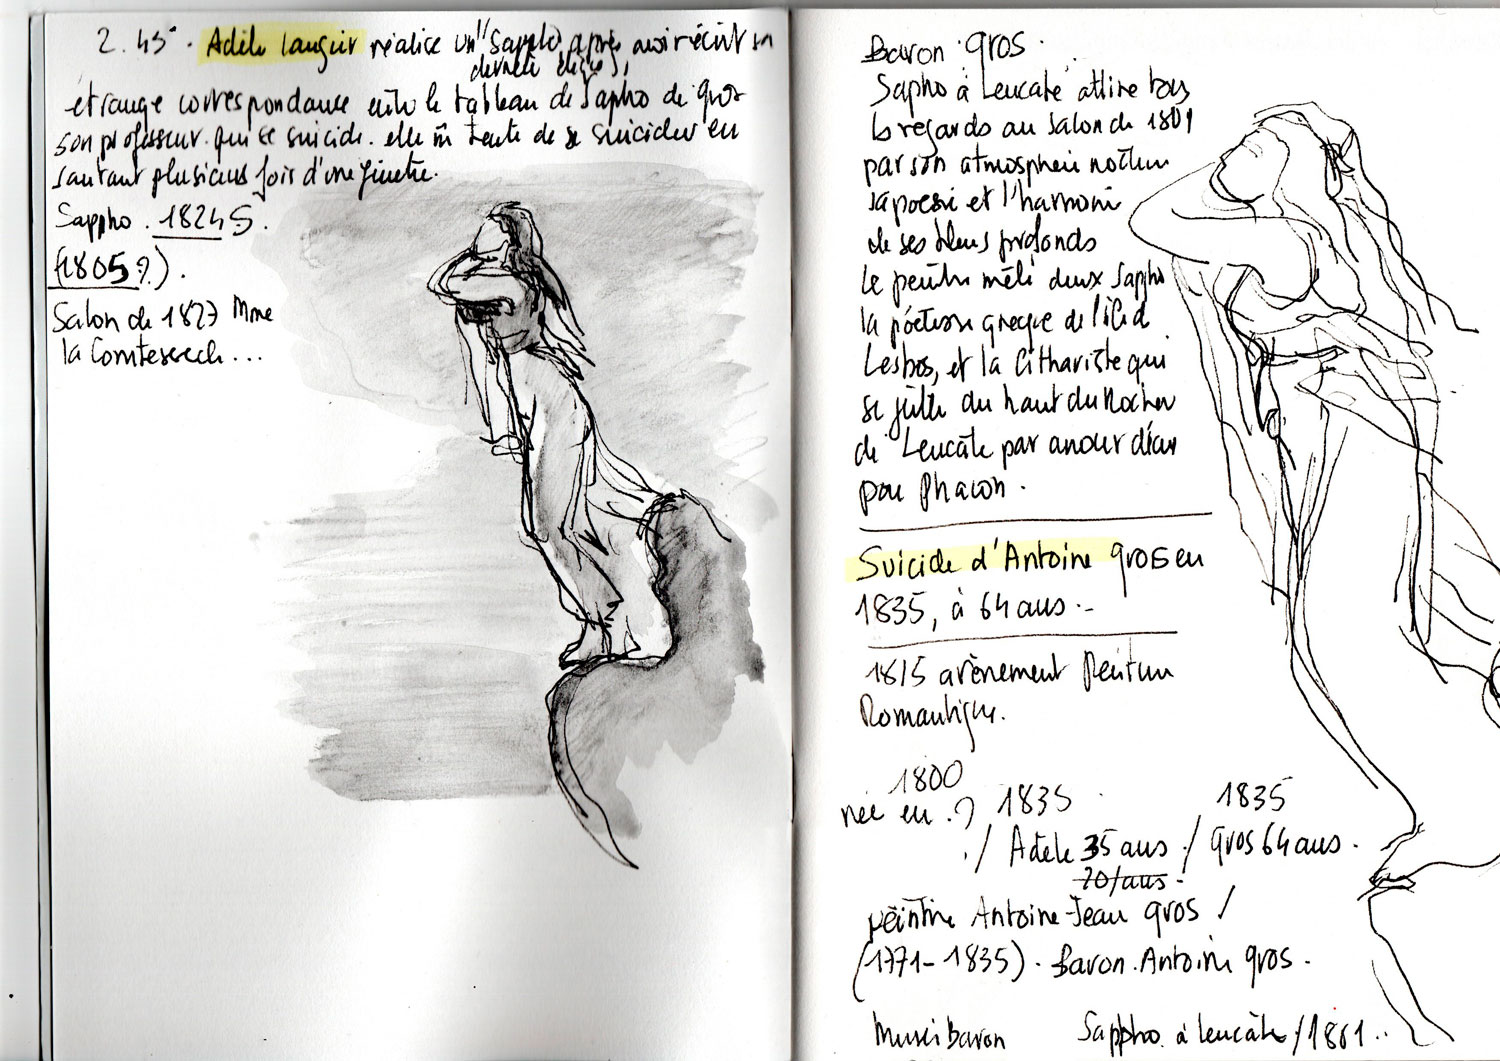 2.45 . Adèle Laugier réalise un "Sappho, après avoir écrit sa
dernière
étrange correspondance entre le tableau de Sapho de gros
son professeur. qui se suicide. elle m tente de se suicider en
sautant plusieurs fois d'une fenêtre.
Sappho . 1824 S.
(1805?).
Salon de 1827 Mme
la Comtesse ...
Baron gros.
Sapho à Leucate attire tous
les regards au salon de 1801
par son atmosphère nocturne
sa poesie et l'harmonie
de ses bleus profonds
Le peintre mêle deux Sappho
la poétesse grecque de l'île de
Lesbos, et la Cithariste qui
se jette du haut du Rocher
de Leucate par amour
pour Phaon .
Suicide d'Antoine gros en
1835, à 64 ans .-
1815 avènement Peinture
Romantique.
1800
née en .? / 1835 . 1835
/ Adèle 35 ans . / gros 64 ans .
20/ans .
peintre Antoine-Jean gros /
(1771-1835). Baron. Antoine gros .
Musée baron Sappho. à leucate / 1801 ..